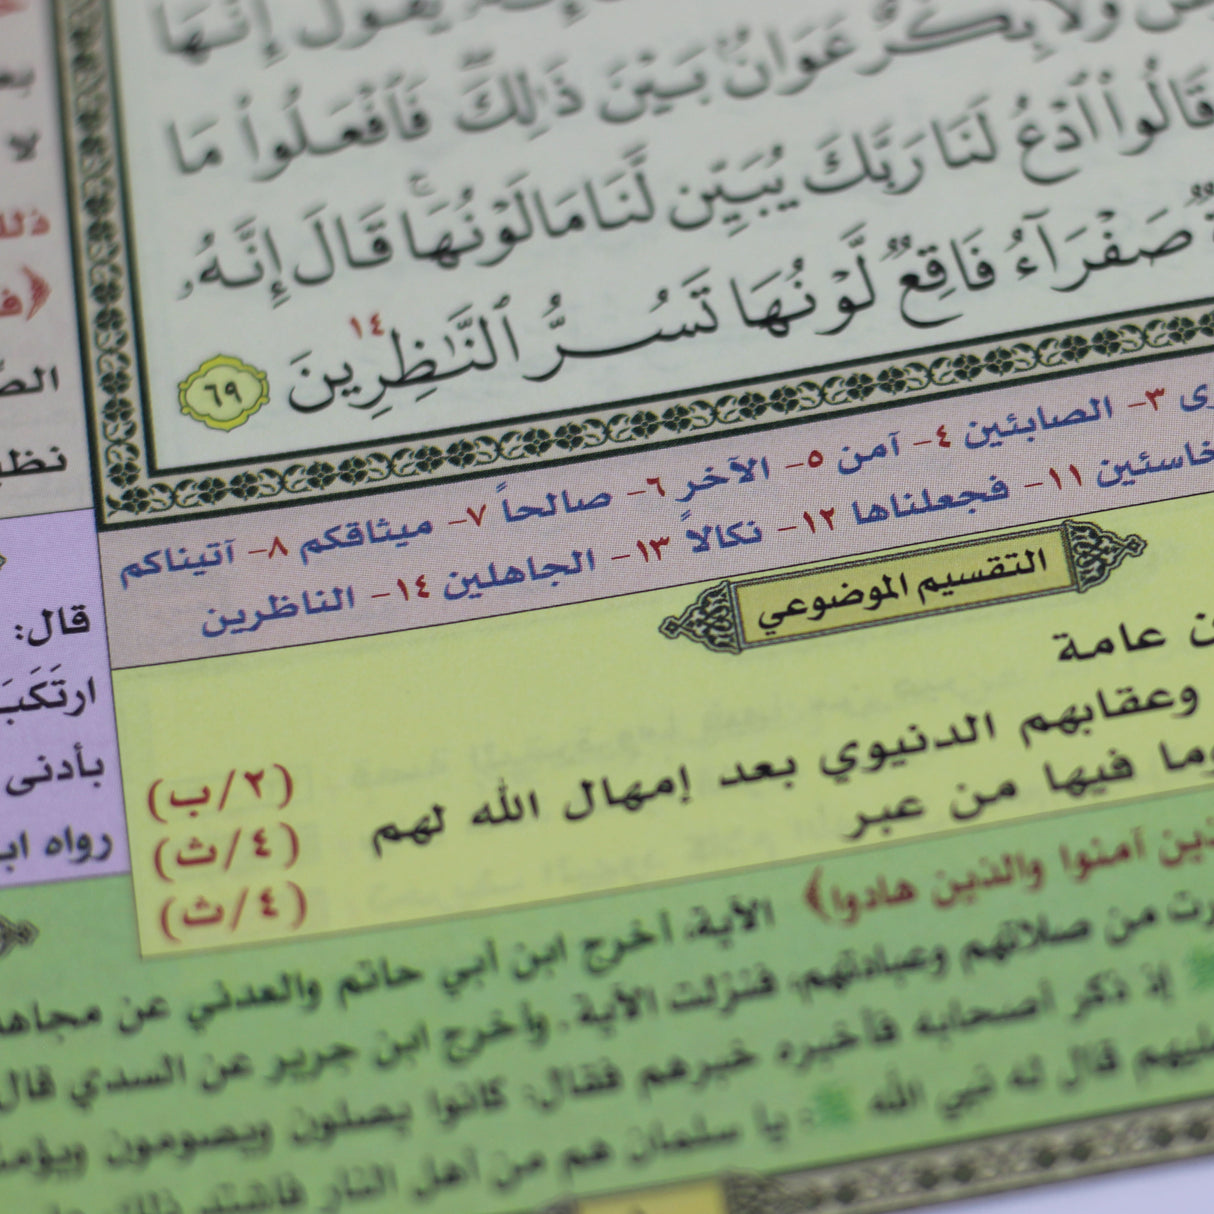 يقول إنها
ولا بكر عوان بين ذلك فافعلوا ما
قَالُوا۟ ٱدْعُ لَنَا رَبَّكَ يُبَيِّن لَّنَا مَا لَوْنُهَا قَالَ إِنَّهُۥ
صَفْرَآءُ فَاقِعٌ لَّوْنُهَا تَسُرُّ ٱلنَّـٰظِرِينَ ١٤ ٦٩
٣- الصابئين ٤- آمن ٥- الآخر ٦- صالحاً ٧- ميثاقكم ٨- آتيناكم
خاسئين ١١- فجعلناها ١٢- نكالاً ١٣- الجاهلين ١٤- الناظرين
التقسيم الموضوعي
عامة (٢/ب)
وعقابهم الدنيوي بعد إمهال الله لهم (٤/ث)
وما فيها من عبر (٤/ث)
آمنوا والذين هادوا﴾ الآية، أخرج ابن أبي حاتم والعدني عن
من صلاتهم وعبادتهم، فنزلت الآية. وأخرج ابن جرير عن السدي قال
إذ ذكر أصحابه فأخبره خبرهم فقال: كانوا يصلون ويصومون
قال له نبي الله : يا سلمان هم من أهل النار فاشتد ذلك
لا
الص
قال:
ارتَكَبَ
بأدنى
رواه